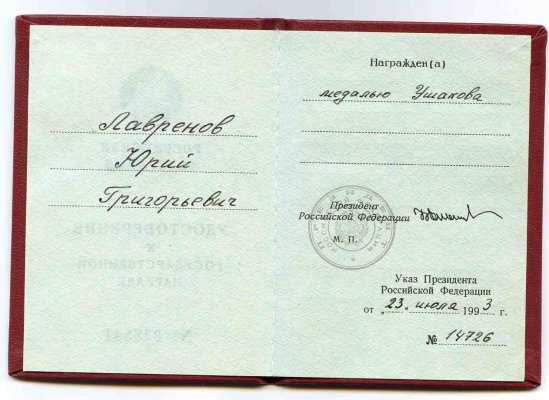 Лавренов
Юрий
Григорьевич
Награжден(а)
медалью Ушакова
Президент
Российской Федерации
М. П.
Указ Президента
Российской Федерации
от „23" июля 1993 г.
№ 14726